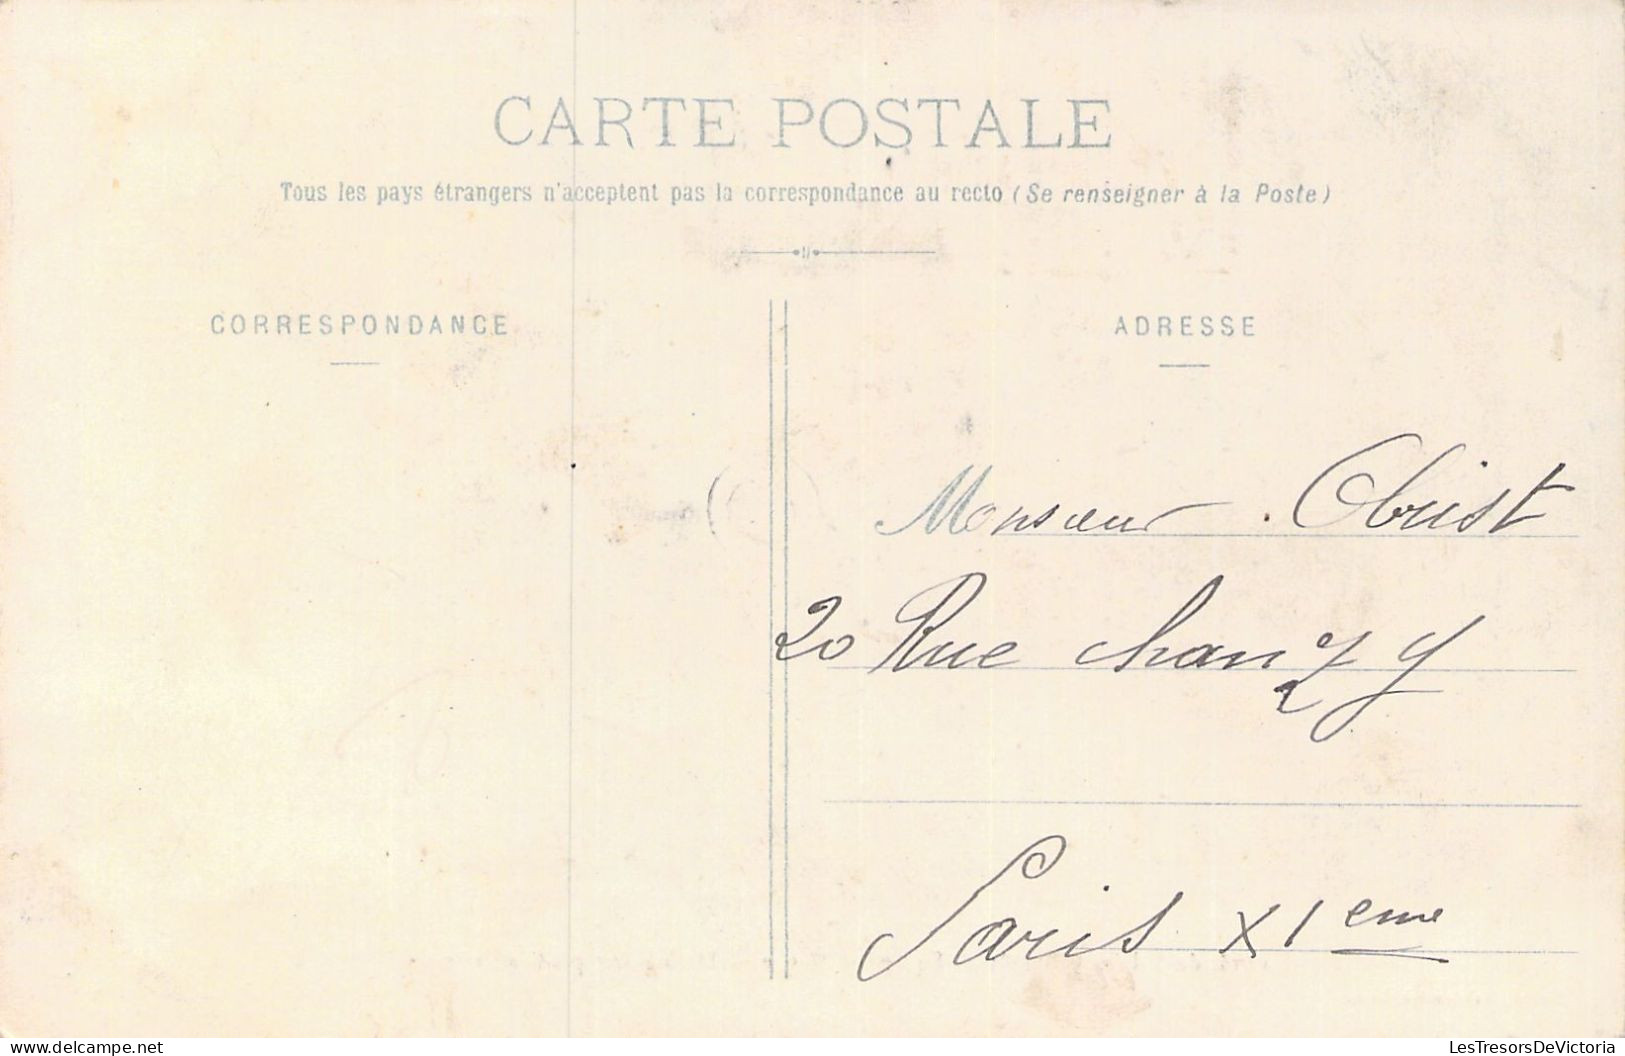 CARTE POSTALE
Tous les pays étrangers n'acceptent pas la correspondance au recto (Se renseigner à la Poste)
CORRESPONDANCE
ADRESSE
Monsieur Obrist
20 Rue Chanzy
Paris XI eme
LesTresorsDeVictoria